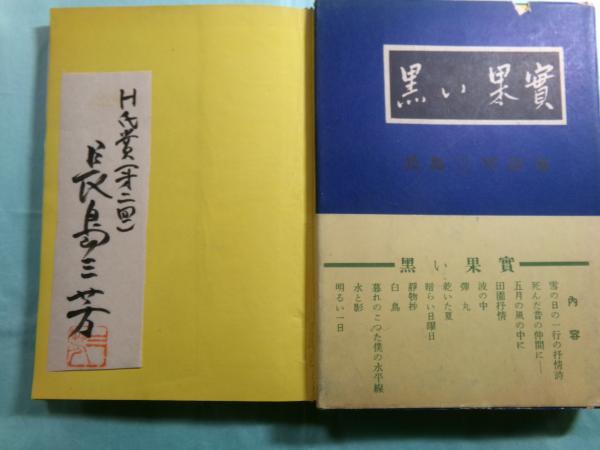 黒い果實
黒い果實
內容
雪の日の一行の抒情詩
死んだ昔の仲間に――
五月の風の中に
田園抒情
波の中
彈丸
乾いた夏
暗らい日曜日
靜物抄
白鳥
暮れのこつた僕の水平線
水と影
明るい一日
H氏賞(才二回)
長島三芳